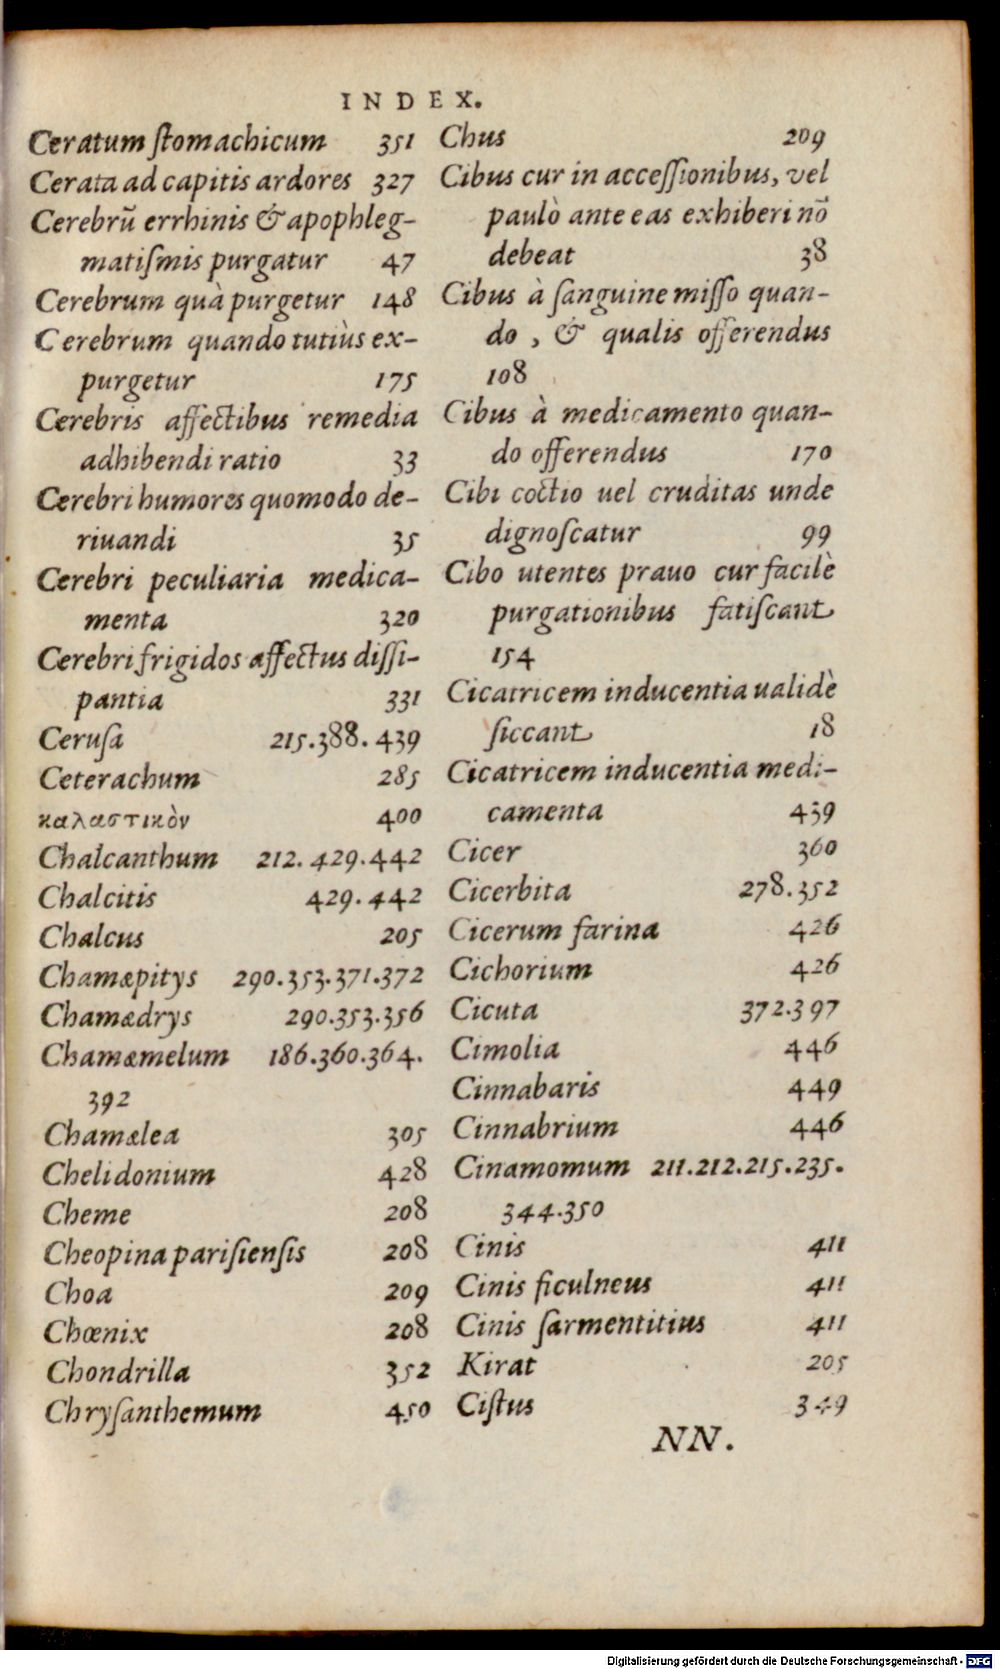 INDEX.
Ceratum ſtomachicum 351
Cerata ad capitis ardores 327
Cerebrū errhinis & apophleg-
matiſmis purgatur 47
Cerebrum quà purgetur 148
Cerebrum quando tutiùs ex-
purgetur 175
Cerebris affectibus remedia
adhibendi ratio 33
Cerebri humores quomodo de-
riuandi 35
Cerebri peculiaria medica-
menta 320
Cerebri frigidos affectus diſſi-
pantia 331
Ceruſa 215.388.439
Ceterachum 285
καλαστικὸν 400
Chalcanthum 212.429.442
Chalcitis 429.442
Chalcus 205
Chamæpitys 290.353.371.372
Chamædrys 290.353.356
Chamæmelum 186.360.364.
392
Chamælea 305
Chelidonium 428
Cheme 208
Cheopina pariſienſis 208
Choa 209
Chœnix 208
Chondrilla 352
Chryſanthemum 450
Chus 209
Cibus cur in acceſſionibus, vel
paulò ante eas exhiberi nō
debeat 38
Cibus à ſanguine miſſo quan-
do, & qualis offerendus
108
Cibus à medicamento quan-
do offerendus 170
Cibi coctio uel cruditas unde
dignoſcatur 99
Cibo utentes prauo cur facilè
purgationibus fatiſcant
154
Cicatricem inducentia ualidè
ſiccant 18
Cicatricem inducentia medi-
camenta 439
Cicer 360
Cicerbita 278.352
Cicerum farina 426
Cichorium 426
Cicuta 372.397
Cimolia 446
Cinnabaris 449
Cinnabrium 446
Cinamomum 211.212.215.235.
344.350
Cinis 411
Cinis ficulneus 411
Cinis ſarmentitius 411
Kirat 205
Ciſtus 349
NN.
Digitalisierung gefördert durch die Deutsche Forschungsgemeinschaft - DFG